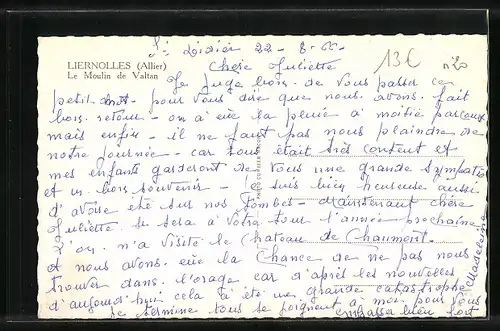 St Didier 22-8-
LIERNOLLES (Allier)
Le Moulin de Valtan
13€
n20
Chère Juliette
Je Juge bois de vous passer ce
petit mot pour vous dire que nous avons fait
bois retour - on a eue la pluie a moitié parcour
mais enfin - il ne faut pas nous plaindre de
notre journée - car tous était très content et
mes enfants garderont de vous une grande sympatie
et un bois souvenir - Je suis bien heureuse aussi
d'avoir été sur nos tombes - Maintenant chère
Juliette se sera a votre tour l'année prochaine
L'on n'a visité le chateau de Chaumont.
et nous avons eue la chance de ne pas nous
trouver dans l'orage car d'après les nouvelles
d'aujourd'hui cela a été une grande catastrophe
Je termine tous se joignent a moi pour vous
embrasse bien fort
Madeleine